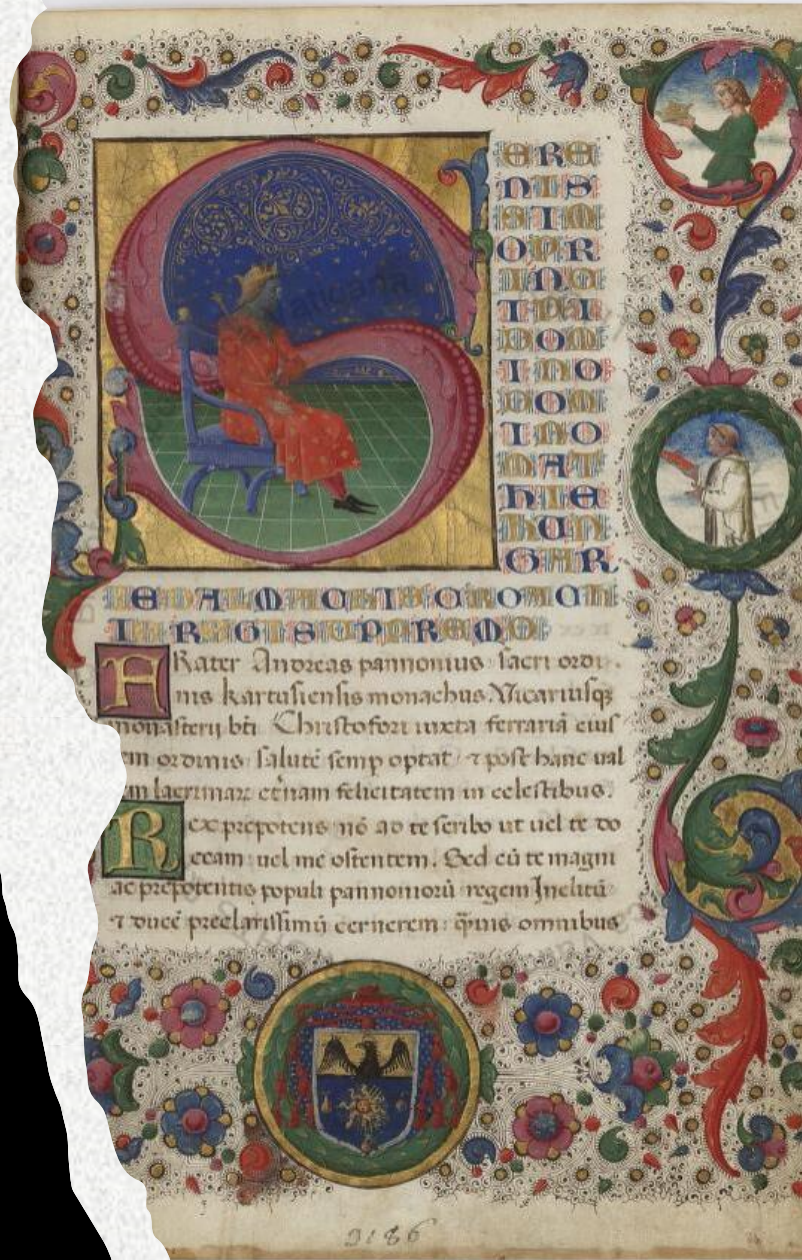 S
ERE
NIS
SIM
OPR
INC
IPI
DOM
INO
DOM
INO
MAT
HIE
HUN
GAR
IE DALMACHIE CROACH
IE REGI SUPREMO
FRater Andreas pannonius sacri ordi
nis kartusiensis monachus. Vicariusq̨
monasterij bti Christofori iuxta ferrariā eius
em ordinis salutē semp optat ⁊ post hanc val
em lacrimarꝫ etnam felicitatem in celestibus.
Rex prepotens nō ad te scribo ut uel te do
ceam: uel me ostentem. Sed cū te magni
ac prepotentis populi pannoniorū regem Inclitū
⁊ ducē preclarissimū cernerem: q̄uis omnibus
3186